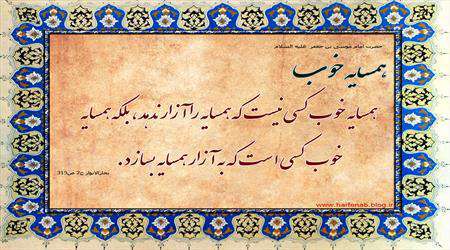 حضرت امام موسی بن جعفر علیه السلام
همسایه خوب
همسایه خوب کسی نیست که همسایه را آزار ندهد، بلکه همسایه
خوب کسی است که به آزار همسایه بسازد.
بحارالانوار ج2 ص319
www.harfenab.blog.ir